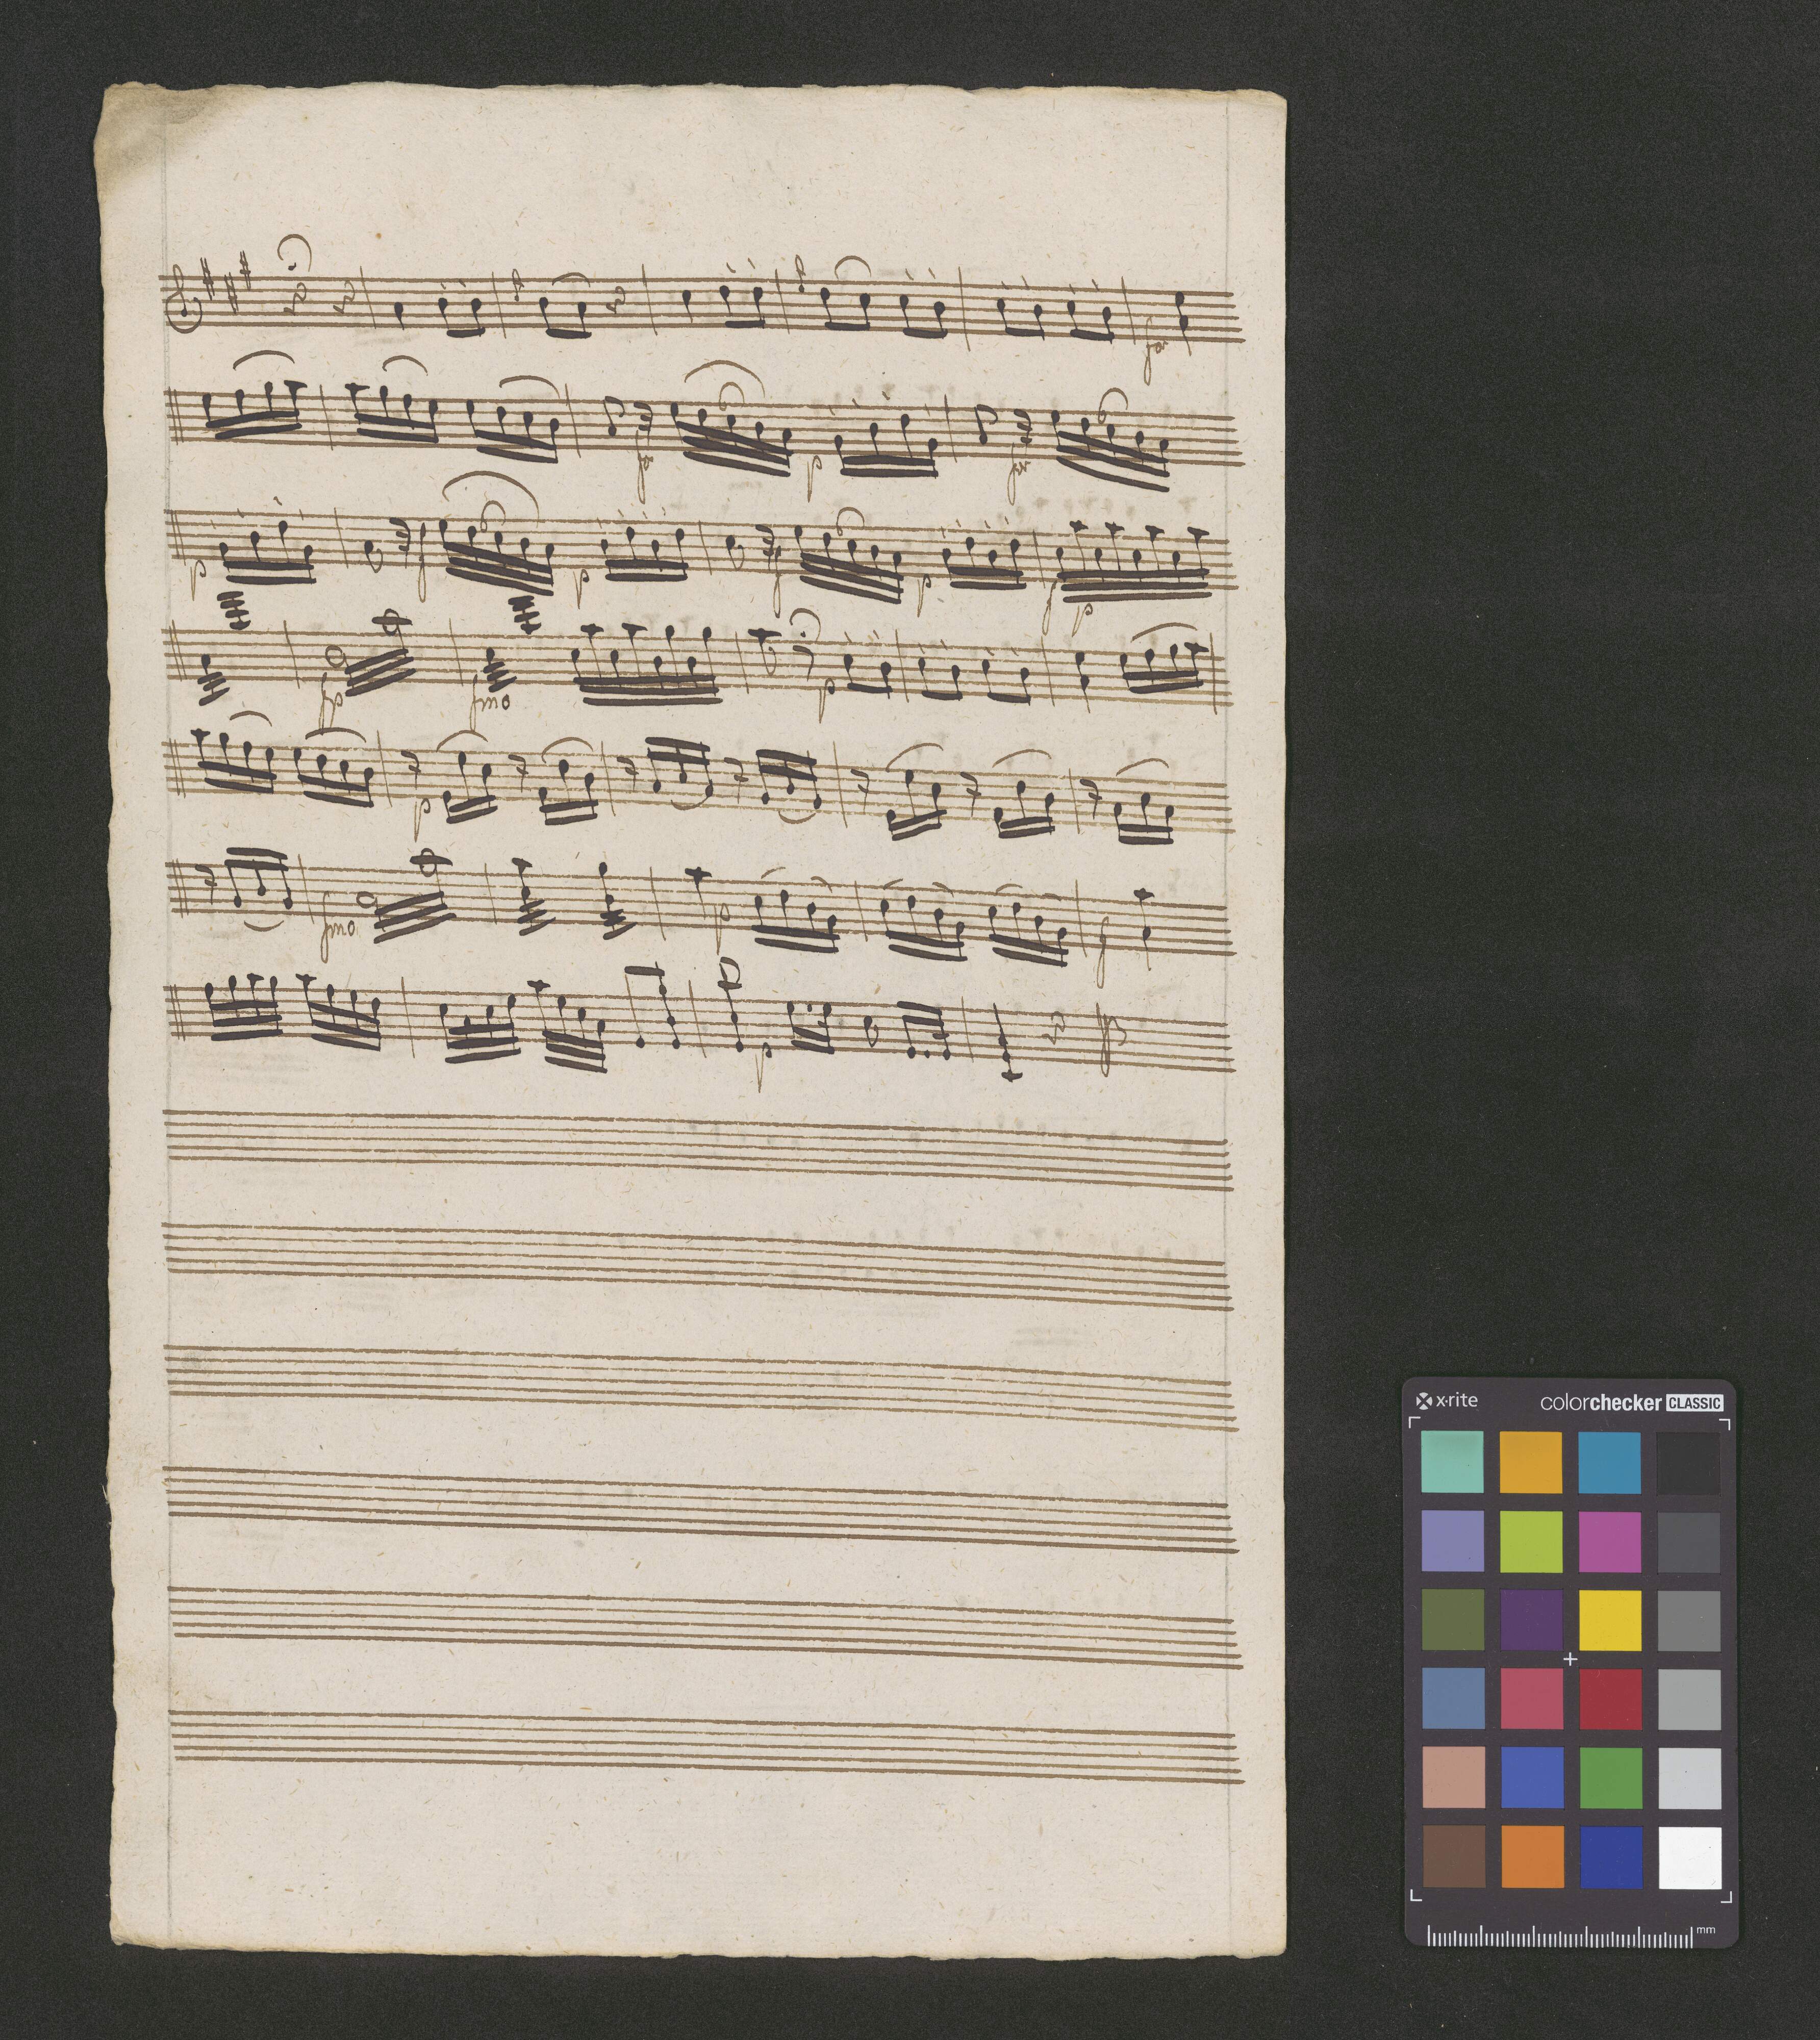 for
for p for
p f p f p f p
fp fmo p
p
fmo p f
p
x·rite colorchecker CLASSIC
mm